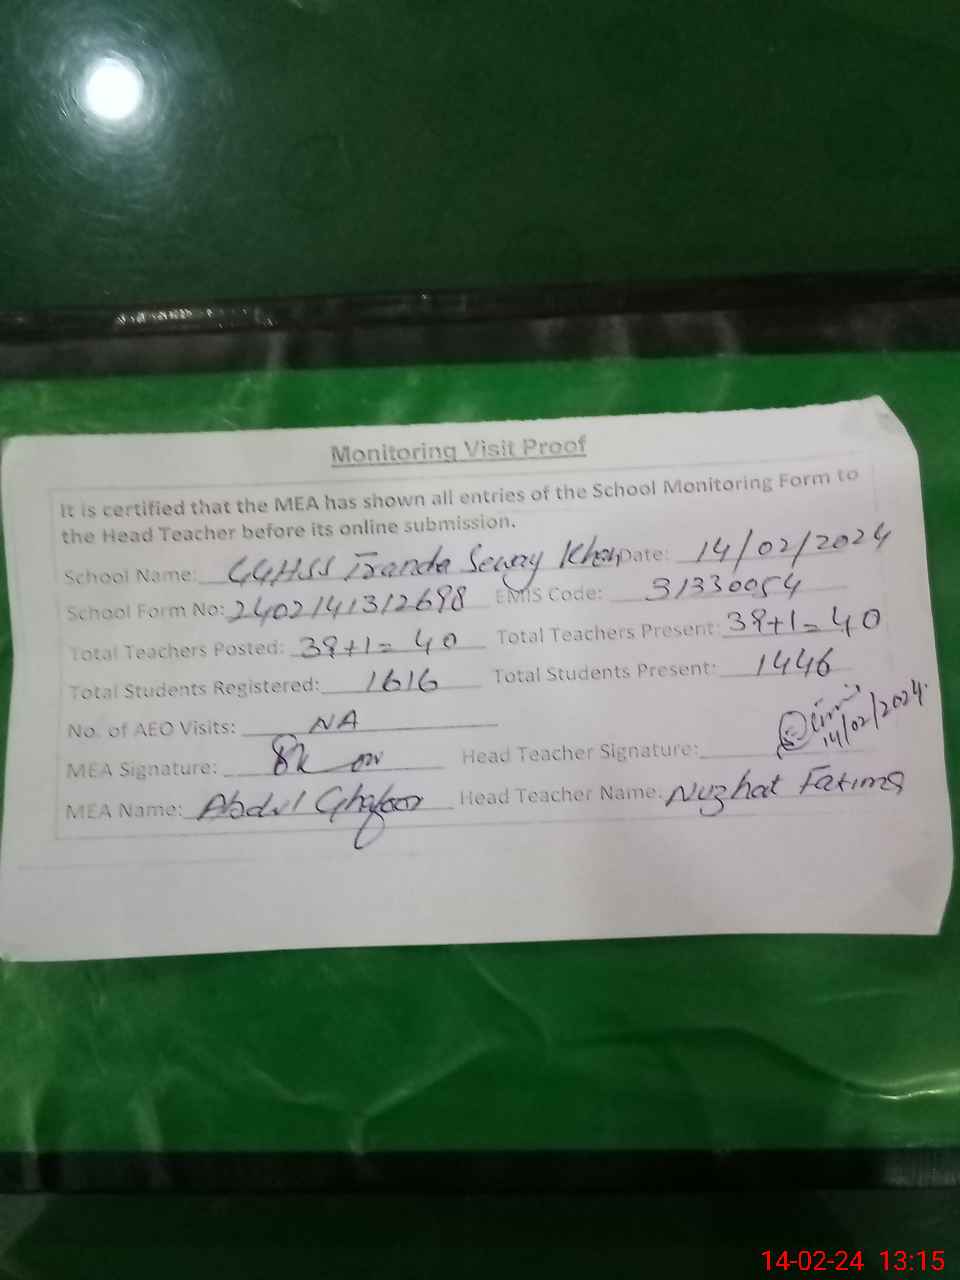 Monitoring Visit Proof
It is certified that the MEA has shown all entries of the School Monitoring Form to
the Head Teacher before its online submission.
School Name: GGHSS Tranda Seway Khan Date: 14/02/2024
School Form No: 2402141312698 EMIS Code: 31330054
Total Teachers Posted: 39+1= 40 Total Teachers Present: 39+1= 40
Total Students Registered: 1616 Total Students Present: 1446
No. of AEO Visits: NA
MEA Signature: Head Teacher Signature: 14/02/2024
MEA Name: Abdul Ghafoor Head Teacher Name: Nuzhat Fatima
14-02-24 13:15